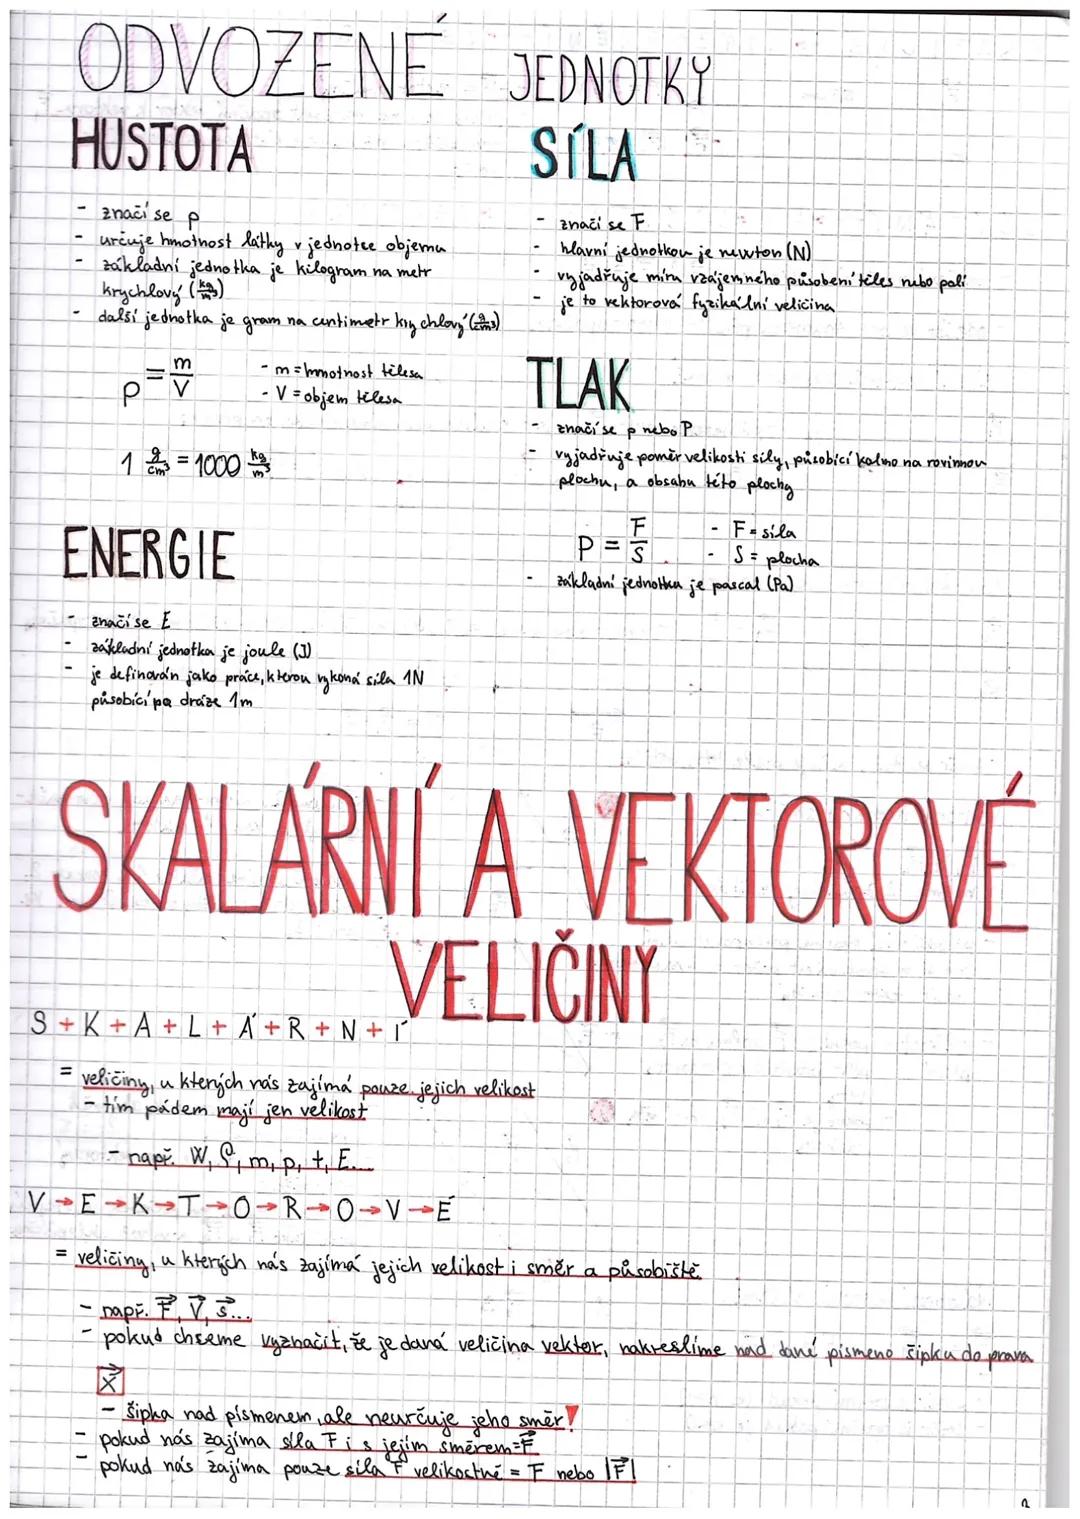 ODVOZENÉ JEDNOTKY
HUSTOTA
- značí se ρ
- určuje hmotnost látky v jednotce objemu
- základní jednotka je kilogram na metr
krychlový (kg/m³)
- další jednotka je gram na centimetr krychlový (g/cm³)
ρ = m/V
- m = hmotnost tělesa
- V = objem tělesa
1 g/cm³ = 1000 kg/m³
ENERGIE
- značí se E
- základní jednotka je joule (J)
- je definován jako práce, kterou vykoná síla 1N
působící po dráze 1m
SÍLA
- značí se F
- hlavní jednotkou je newton (N)
- vyjadřuje míru vzájemného působení těles nebo polí
- je to vektorová fyzikální veličina
TLAK
- značí se p nebo P
- vyjadřuje poměr velikosti síly, působící kolmo na rovinnou
plochu, a obsahu této plochy
p = F/S
- F = síla
- S = plocha
- základní jednotka je pascal (Pa)
SKALÁRNÍ A VEKTOROVÉ
VELIČINY
S + K + A + L + Á + R + N + Í
= veličiny, u kterých nás zajímá pouze jejich velikost
- tím pádem mají jen velikost
- např. W, ρ, m, p, t, E...
V → E → K → T → O → R → O → V → É
= veličiny, u kterých nás zajímá jejich velikost i směr a působiště
- např. F⃗, V⃗, s⃗...
- pokud chceme vyznačit, že je daná veličina vektor, nakreslíme nad dané písmeno šipku do prava
x⃗
- šipka nad písmenem, ale neurčuje jeho směr!
- pokud nás zajíma síla F i s jejím směrem = F⃗
- pokud nás zajíma pouze síla F velikostně = F nebo |F⃗|